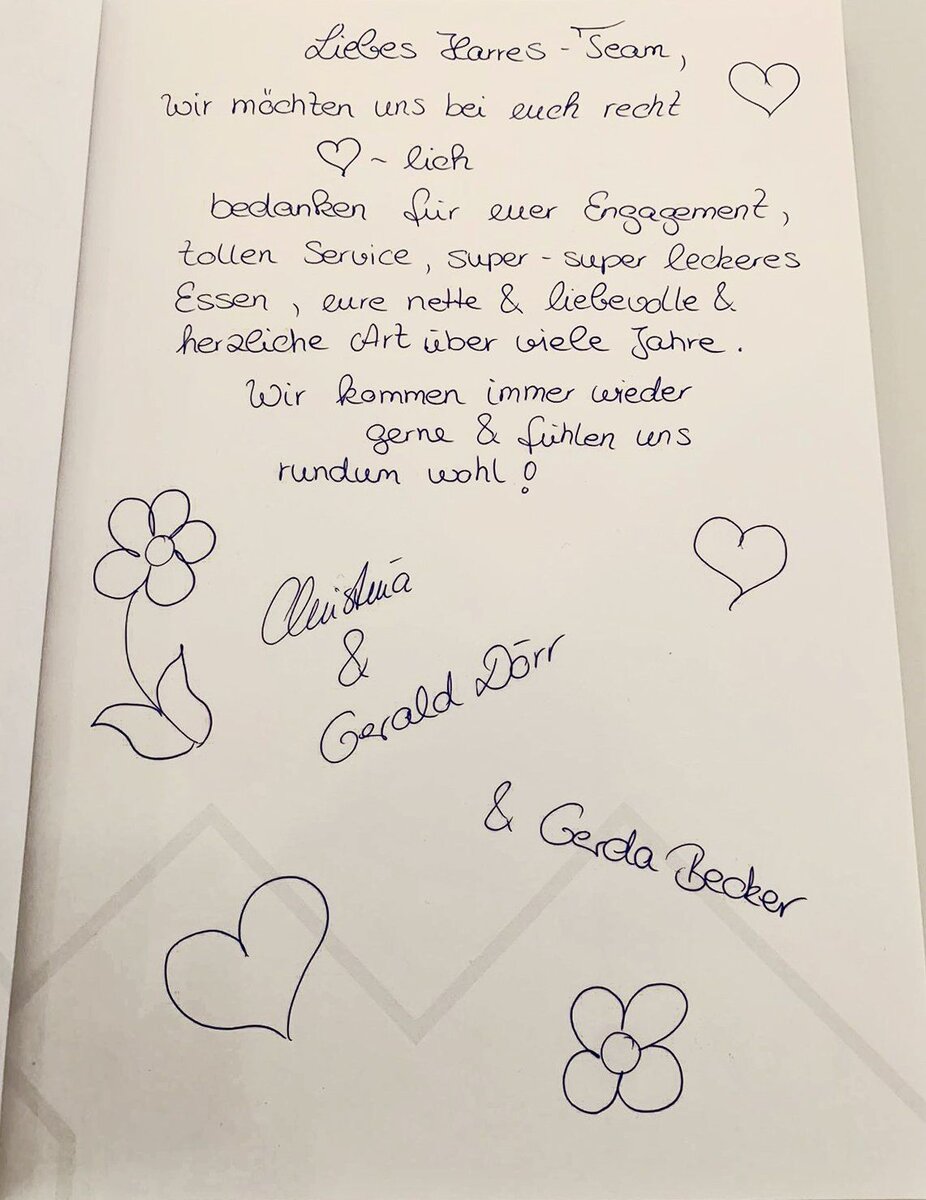 Liebes Harres-Team,
wir möchten uns bei euch recht
♡~lich
bedanken für euer Engagement,
tollen Service, super-super leckeres
Essen, eure nette & liebevolle &
herzliche Art über viele Jahre.
Wir kommen immer wieder
gerne & fühlen uns
rundum wohl!
Christina
&
Gerald Dörr
& Gerda Becker